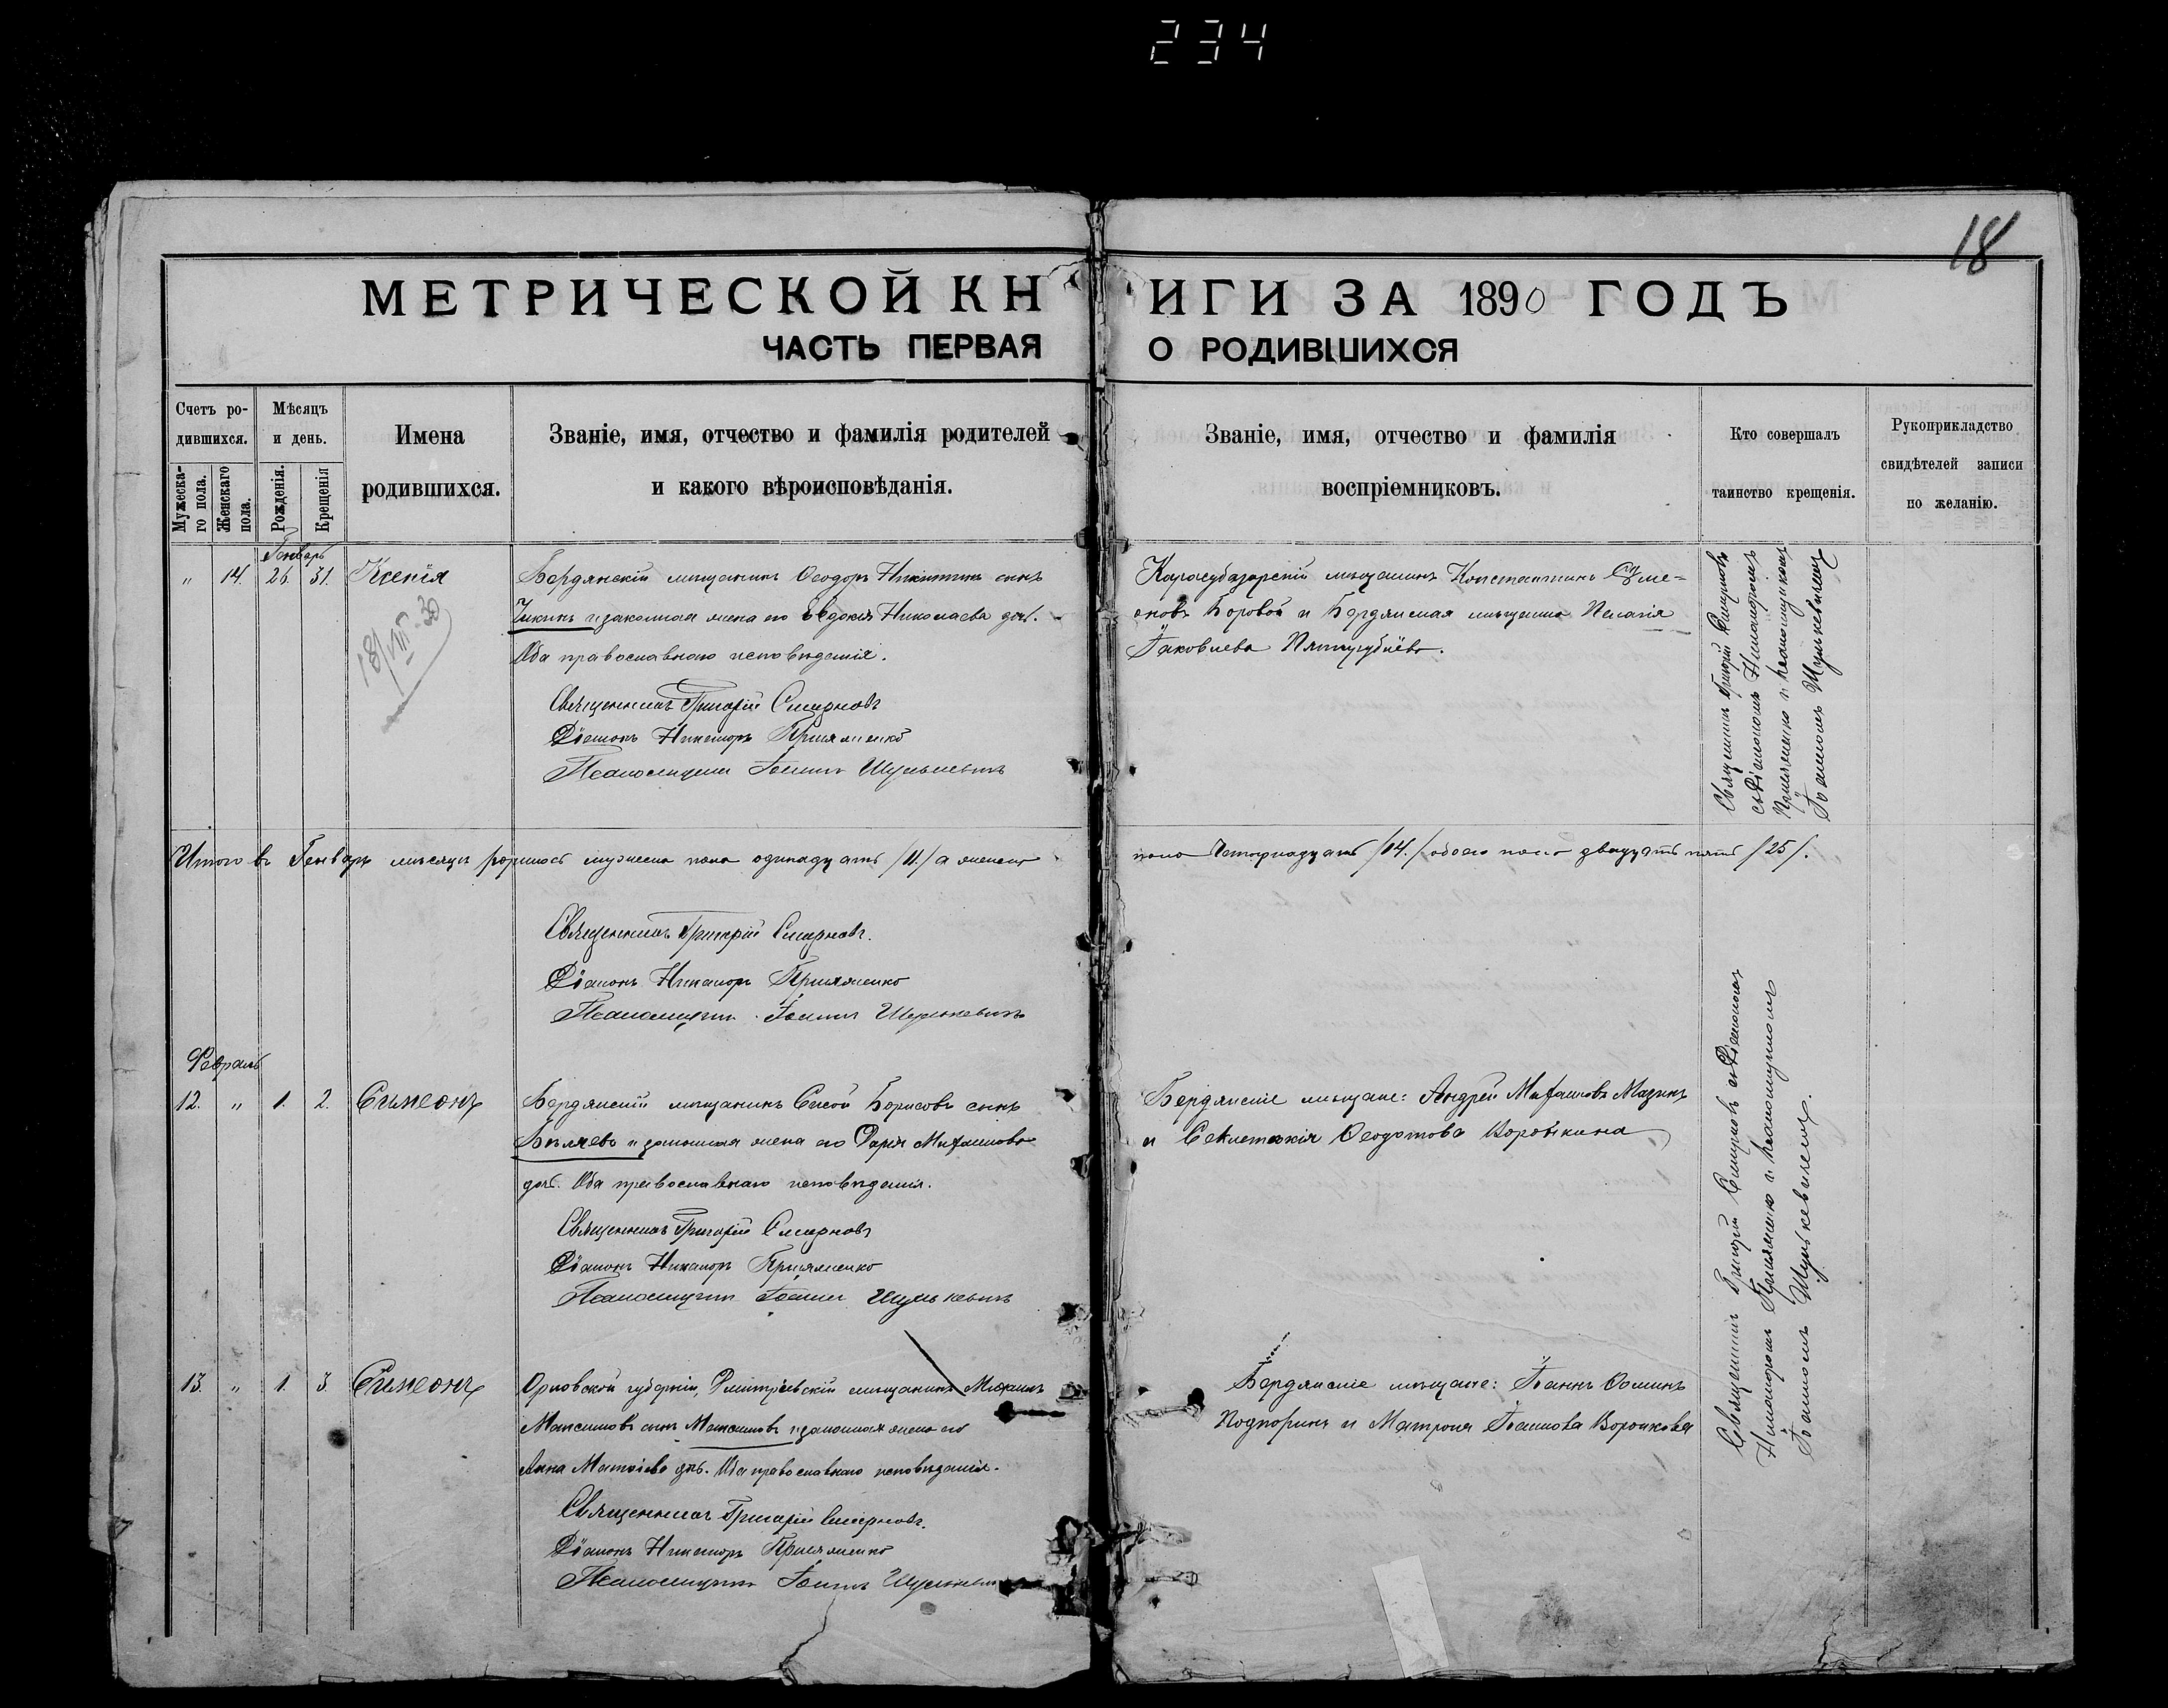 234
18
МЕТРИЧЕСКОЙ КНИГИ ЗА 1890 ГОДЪ
ЧАСТЬ ПЕРВАЯ О РОДИВШИХСЯ
Счетъ ро-
дившихся.
Мужеска-
го пола.
Женскаго
пола.
Мѣсяцъ
и день.
Рожденія.
Крещенія
Имена
родившихся.
Званіе, имя, отчество и фамилія родителей
и какого вѣроисповѣданія.
Званіе, имя, отчество и фамилія
воспріемниковъ.
Кто совершалъ
таинство крещенія.
Рукоприкладство
свидѣтелей записи
по желанію.
Генварь
" 14. 26. 31. Ксенія
18/VIII-30
Бердянскій мѣщанинъ Ѳеодоръ Никитинъ сынъ
Чикинъ и законная жена его Евдокія Николаева доч.
Оба православнаго исповѣданія.
Священникъ Григорій Смирновъ
Діаконъ Никаноръ Прияженко
Псаломщикъ Іоаннъ Шулькевичъ
Карасубазарскій мѣщанинъ Константинъ Симе-
оновъ Боровой и Бердянская мѣщанка Пелагія
Іаковлева
Священникъ Григорій Смирновъ
съ Діакономъ Никаноромъ
Прияженко и псаломщикомъ
Іоанномъ Шулькевичемъ
Итого въ Генварѣ мѣсяцѣ родилось мужеска пола одинадцать /11./ а женска
пола четырнадцать /14./ обоего пола двадцать пять /25/.
Священникъ Григорій Смирновъ.
Діаконъ Никаноръ Прияженко
Псаломщикъ Іоаннъ Шулькевичъ
Февраль
12. " 1. 2. Симеонъ
Бердянскій мѣщанинъ Сисой Борисовъ сынъ
Бѣляевъ и законная жена его Дарія Михаилова
доч. Оба православнаго исповѣданія.
Священникъ Григорій Смирновъ
Діаконъ Никаноръ Прияженко
Псаломщикъ Іоаннъ Шулькевичъ
Бердянскіе мѣщане: Андрей Михаиловъ Мазинъ
и Ѳеодотова Воробкина
Священникъ Григорій Смирновъ съ Діакономъ
Никаноромъ Прияженко и псаломщикомъ
Іоанномъ Шулькевичемъ.
13. " 1. 3. Симеонъ
Орловской губерніи, Дмитріевскій мѣщанинъ Михаилъ
Максимовъ сынъ Максимовъ и законная жена его
Анна Матѳіева доч. Оба православнаго исповѣданія.
Священникъ Григорій Смирновъ.
Діаконъ Никаноръ Прияженко
Псаломщикъ Іоаннъ
Бердянскіе мѣщане: Іоаннъ Ѳоминъ
Подпоринъ и Матрона Іоаннова Воронкова